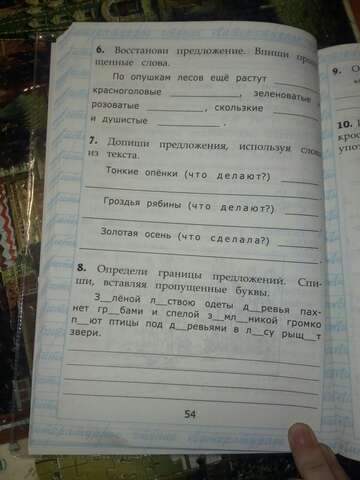 6. Восстанови предложение. Впиши
щенные слова.
По опушкам лесов ещё растут
красноголовые ___, зеленоватые
розоватые ___, скользкие ___
и душистые ___.
7. Допиши предложения, используя
из текста.
Тонкие опёнки (что делают?) ___
Гроздья рябины (что делают?) ___
Золотая осень (что сделала?) ___
8. Определи границы предложений. Спи-
ши, вставляя пропущенные буквы.
З__лёной л__ствою одеты д__ревья пах-
нет гр__бами и спелой з__мл__никой громко
п__ют птицы под д__ревьями в л__су рыщ__т
звери.
54
9.
10.